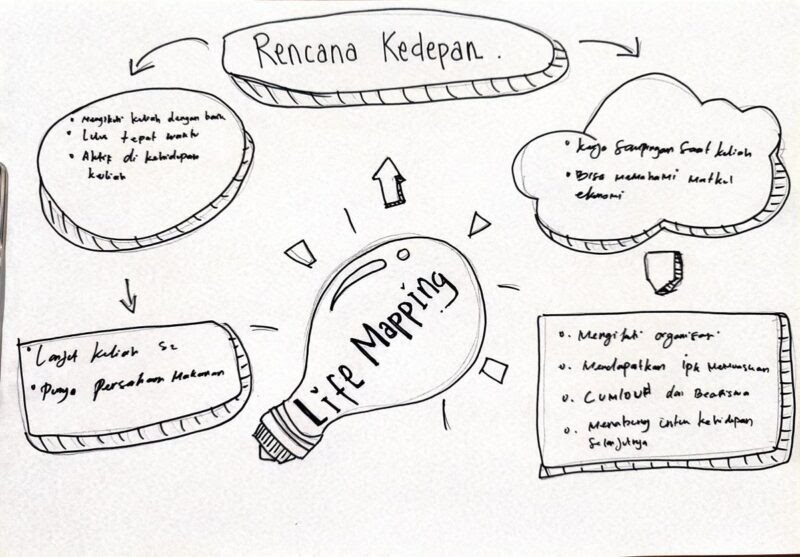 Rencana Kedepan.
• Mengikuti kuliah dengan baik
• Lulus tepat waktu
• Aktif di kehidupan
kuliah
• Kerja Sampingan Saat kuliah
• Bisa memahami matkul
ekonomi
Life Mapping
• Lanjut kuliah S2
• Punya Perusahaan Makanan
• Mengikuti organisasi
• Mendapatkan ipk Memuaskan
• CUMLOUD dan Beasiswa
• Menabung untuk kehidupan
Selanjutnya